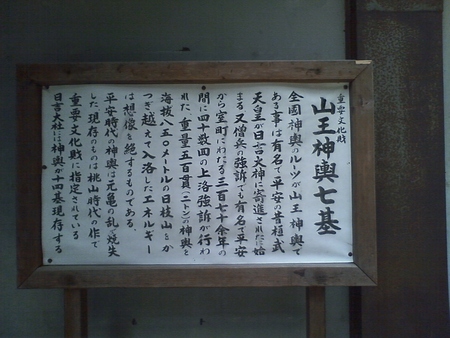 重要文化財
山王神輿七基
全國神輿のルーツが山王神輿で
ある事は有名で平安の昔桓武
天皇が日吉大神に寄進されたに始
まる 又僧兵の強訴でも有名で平安
から室町にわたる三百七十余年の
間に四十数回の上洛強訴が行わ
れた、重量五百貫(ニトン)の神輿を
海抜八五〇メートルの日枝山をか
つぎ越えて入洛したエネルギー
は想像を絶するものである。
平安時代の神輿は元亀の乱で焼失
した 現存のものは桃山時代の作で
重要文化財に指定されている
日吉大社には神輿が十四基現存する